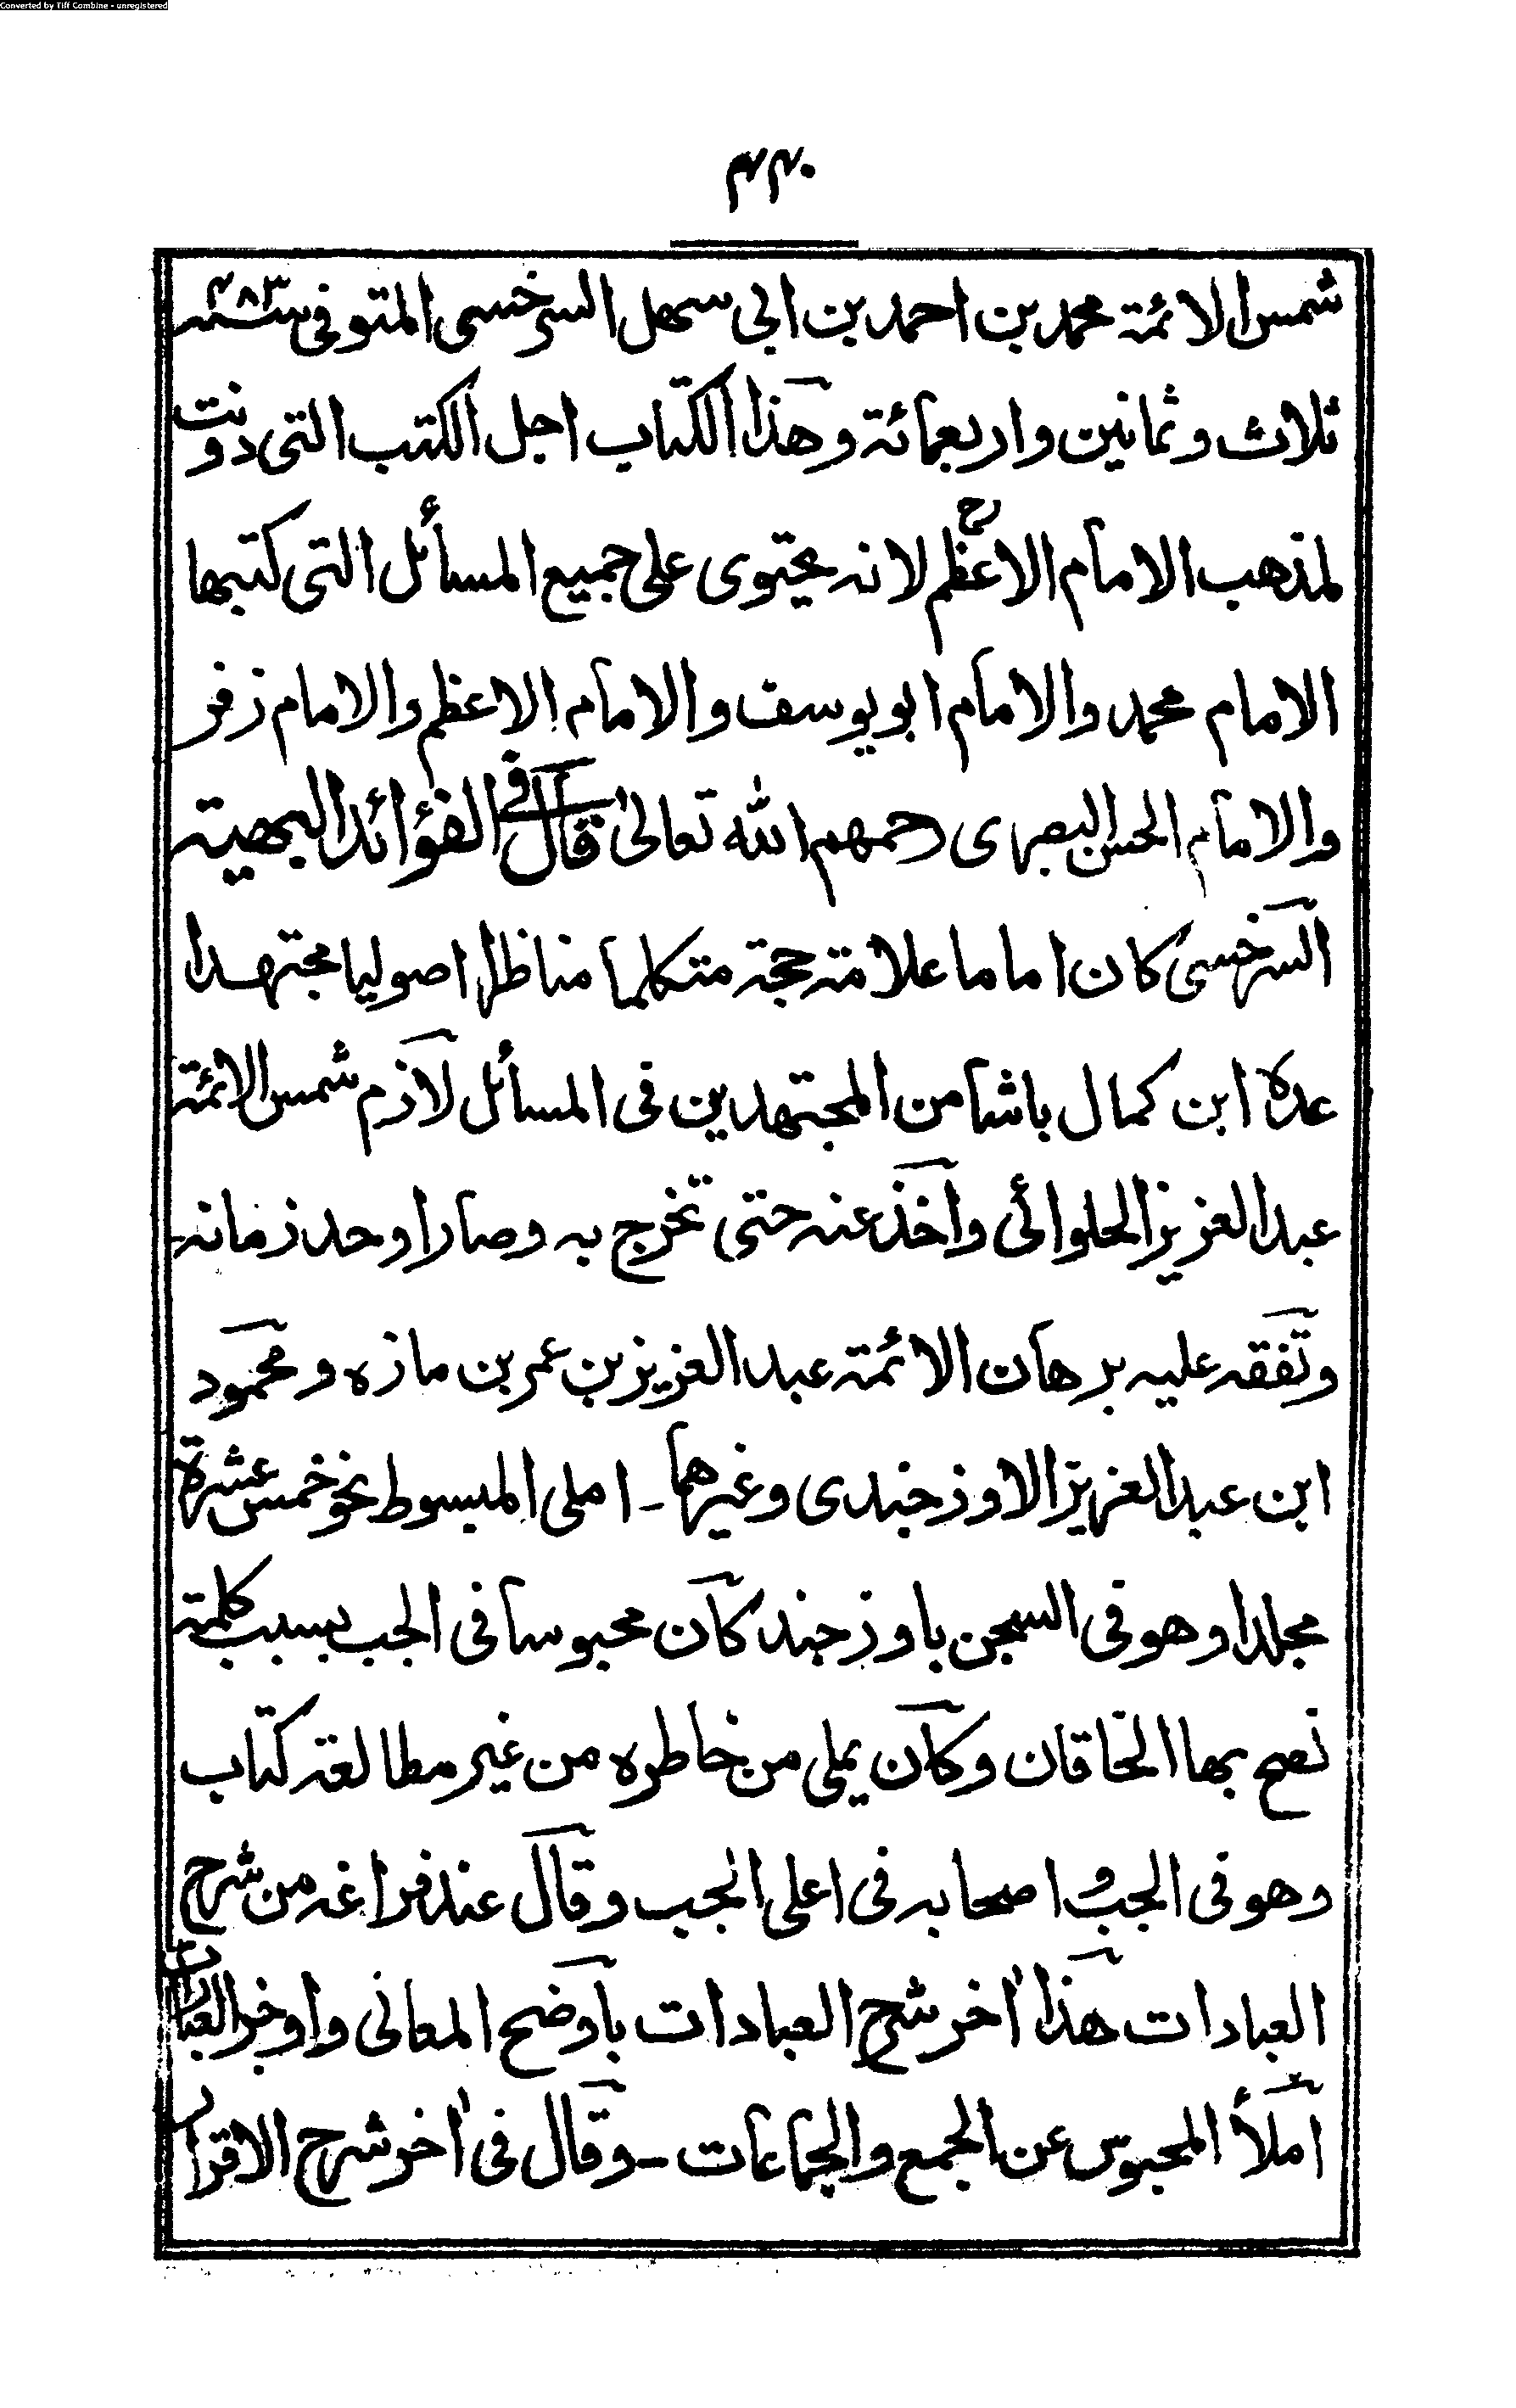 Converted by Tiff Combine - unregistered
۴۴۰
شمس الائمة محمد بن احمد بن ابی سهل السرخسی المتوفی سنه ۴۸۳
ثلاث و ثمانین و اربعمائة و هذا الکتاب اجل الکتب التی دونت
لمذهب الامام الاعظم رح لانه یحتوی علی جمیع المسائل التی کتبها
الامام محمد والامام ابو یوسف والامام الاعظم والامام زفر
والامام الحسن البصری رحمهم الله تعالیٰ قال فی الفؤائد البهیته
السرخسی کان اماما علامته حجته متکلما مناظرا اصولیا مجتهدا
عده ابن کمال باشا من المجتهدین فی المسائل لازم شمس الائمة
عبد العزیز الحلوائی واخذ عنه حتی تخرج به وصار اوحد زمانه
وتفقه علیه برهان الائمته عبد العزیز بن عمر بن مازه و محمود
ابن عبد العزیز الاوزجندی وغیرهما - املی المبسوط نحو خمس عشرة
مجلدا وهو فی السجن باوزجند کان محبوسا فی الجب بسبب کلمته
نصح بها الخاقان وکان یملی من خاطره من غیر مطالعته کتاب
وهو فی الجب و اصحابه فی اعلی الجب وقال عند فراغه من شرح
العبادات هذا اٰخر شرح العبادات باوضح المعانی واوجز العبارات
املأ المحبوس عن الجمع والجماعات - وقال فی اٰخر شرح الاقرار